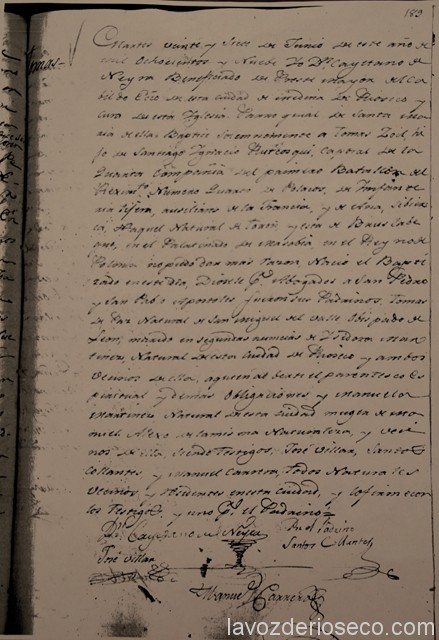 189
Tomas
En martes veinte y siete de Junio de este año de
mil Ochocientos y Nueve Yo Dn Cayetano de
Neyra Beneficiado de Preste mayor del Ca
bildo Ecco de esta Ciudad de Medina de Rioseco y
Cura de esta Iglesia Parroquial de Santa Ma
ria de ella Baptice Solemnemente a Tomas Jose hi
jo de Santiago Ignacio, Caporal de la
Quarta Compañia del primero Batallon del
Reximto Numero Quarto de Polacos, de Infan
auxiliares de la Francia, y de Ana
Natural de y esta de
que, en el Palatinado de en el Reyno de
Polonia no pudo dar mas razon, Nacio el Bapti
zado en este dia, Diosele Pr Abogados a San Pedro
y San Pablo Apostoles fueron sus Padrinos, Tomas
de Paz Natural de San Miguel del Valle Obispado de
Leon, marido en segundas nuncias de Ysidora Mar
tinez, Natural de esta Ciudad de Rioseco y ambos
Vecinos de ella, a quien adverti el parentesco Es
piritual y demas Obligaciones y Manuela
Martinez Natural de esta Ciudad muger de
Alexo de la misma Naturaleza, y veci
nos de ella, siendo Testigos, José Villar, Santos
Collantes, y Manuel Carreño, todos Naturales
Vecinos y residentes en esta Ciudad, y lo firme con
los Testigos y uno Pr el Padrino=
Dn Cayetano de Neyra
Pr el Padrino
Santos Collantes
José Villar
Manuel Carreño
lavozderioseco.com